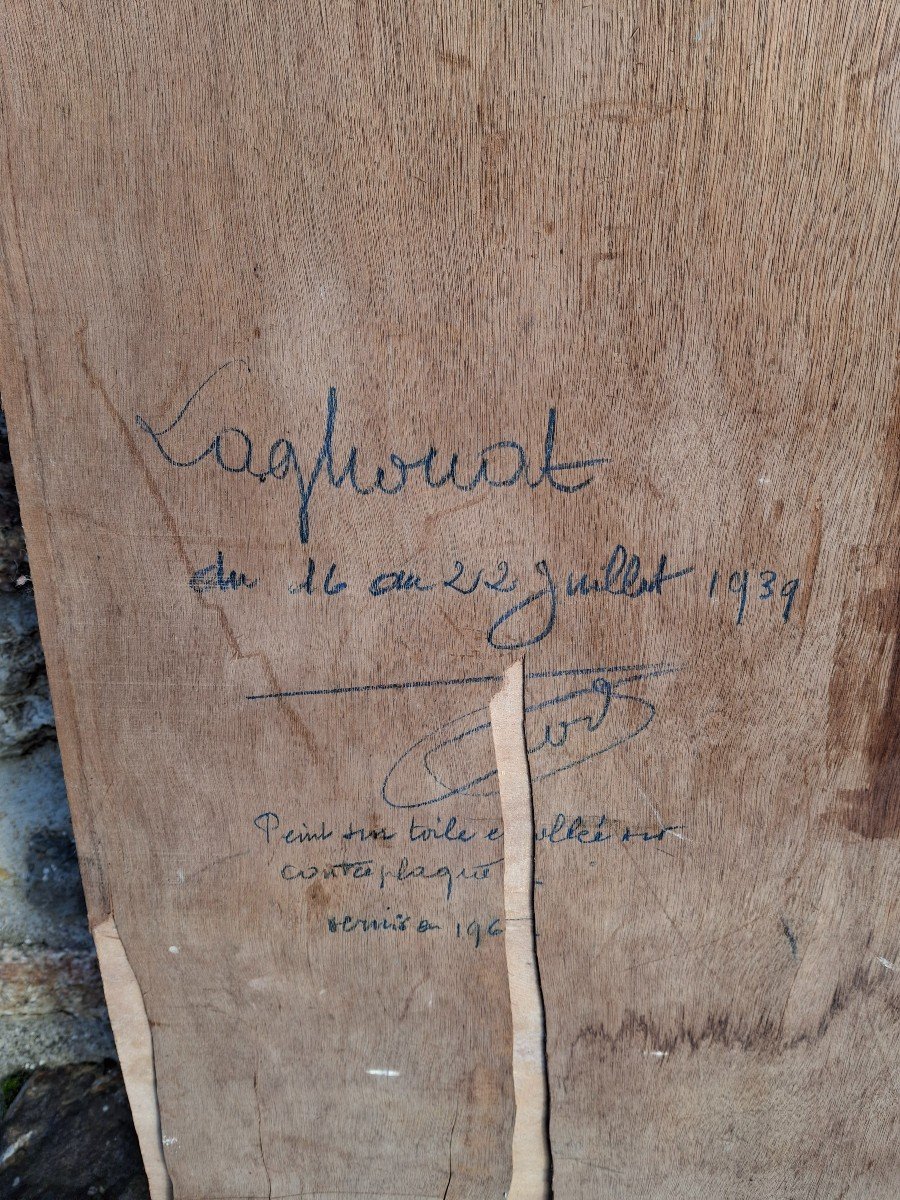 Laghouat
du 16 au 22 Juillet 1939
Peint sur toile e ollée sur
contreplaqué
vernis en 196